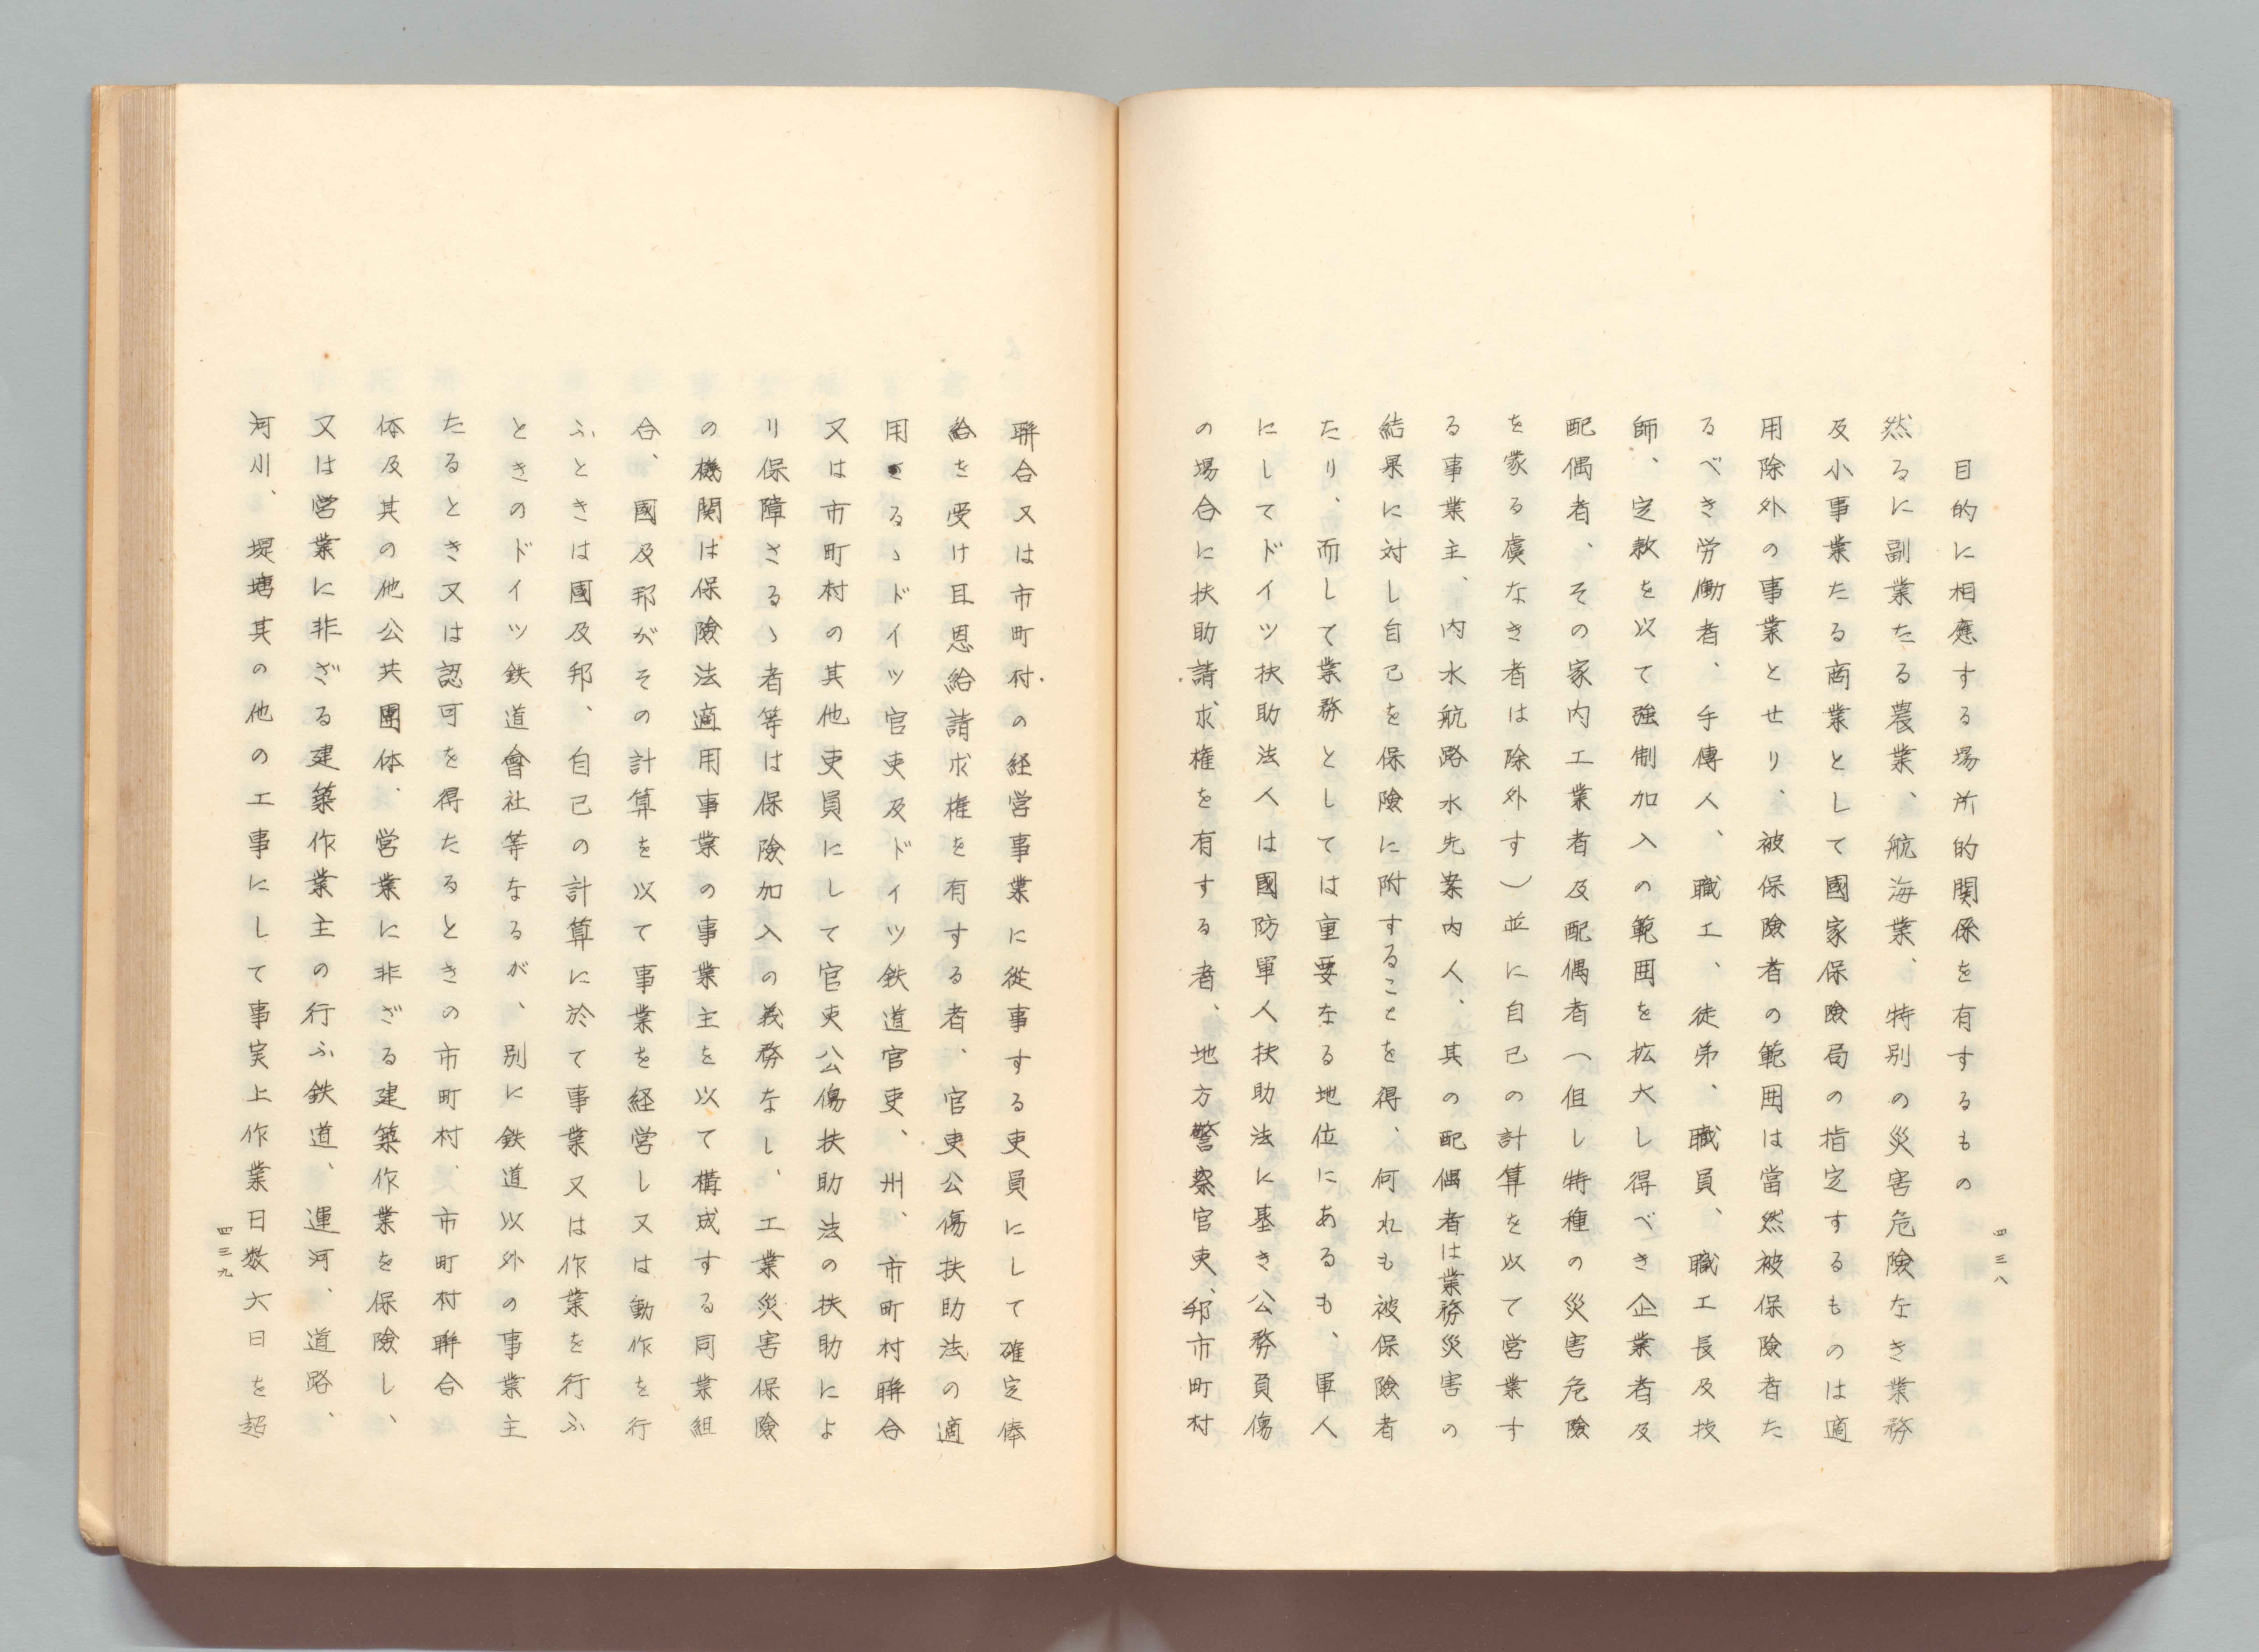 目的に相應する場所的関係を有するもの
然るに副業たる農業、航海業、特別の災害危険なき業務
及小事業たる商業として國家保険局の指定するものは適
用除外の事業とせり、被保険者の範囲は當然被保険者た
るべき労働者、手傳人、職工、徒弟、職員、職工長及技
師、定款を以て強制加入の範囲を拡大し得べき企業者及
配偶者、その家内工業者及配偶者（但し特種の災害危険
を蒙る虞なき者は除外す）並に自己の計算を以て営業す
る事業主、内水航路水先案内人、其の配偶者は業務災害の
結果に対し自己を保険に附することを得、何れも被保険者
たり、而して業務としては重要なる地位にあるも、軍人
にしてドイツ扶助法人は國防軍人扶助法に基き公務員傷
の場合に扶助請求権を有する者、地方警察官吏、邦市町村
四三八
聯合又は市町村の経営事業に從事する吏員にして確定俸
給を受け且恩給請求権を有する者、官吏公傷扶助法の適
用さるゝドイツ官吏及ドイツ鉄道官吏、州、市町村聯合
又は市町村の其他吏員にして官吏公傷扶助法の扶助によ
り保障さるゝ者等は保険加入の義務なし、工業災害保険
の機関は保険法適用事業の事業主を以て構成する同業組
合、國及邦がその計算を以て事業を経営し又は動作を行
ふときは國及邦、自己の計算に於て事業又は作業を行ふ
ときのドイツ鉄道會社等なるが、別に鉄道以外の事業主
たるとき又は認可を得たるときの市町村、市町村聯合
体及其の他公共團体、営業に非ざる建築作業を保険し、
又は営業に非ざる建築作業主の行ふ鉄道、運河、道路、
河川、堤塘其の他の工事にして事実上作業日数六日を超
四三九